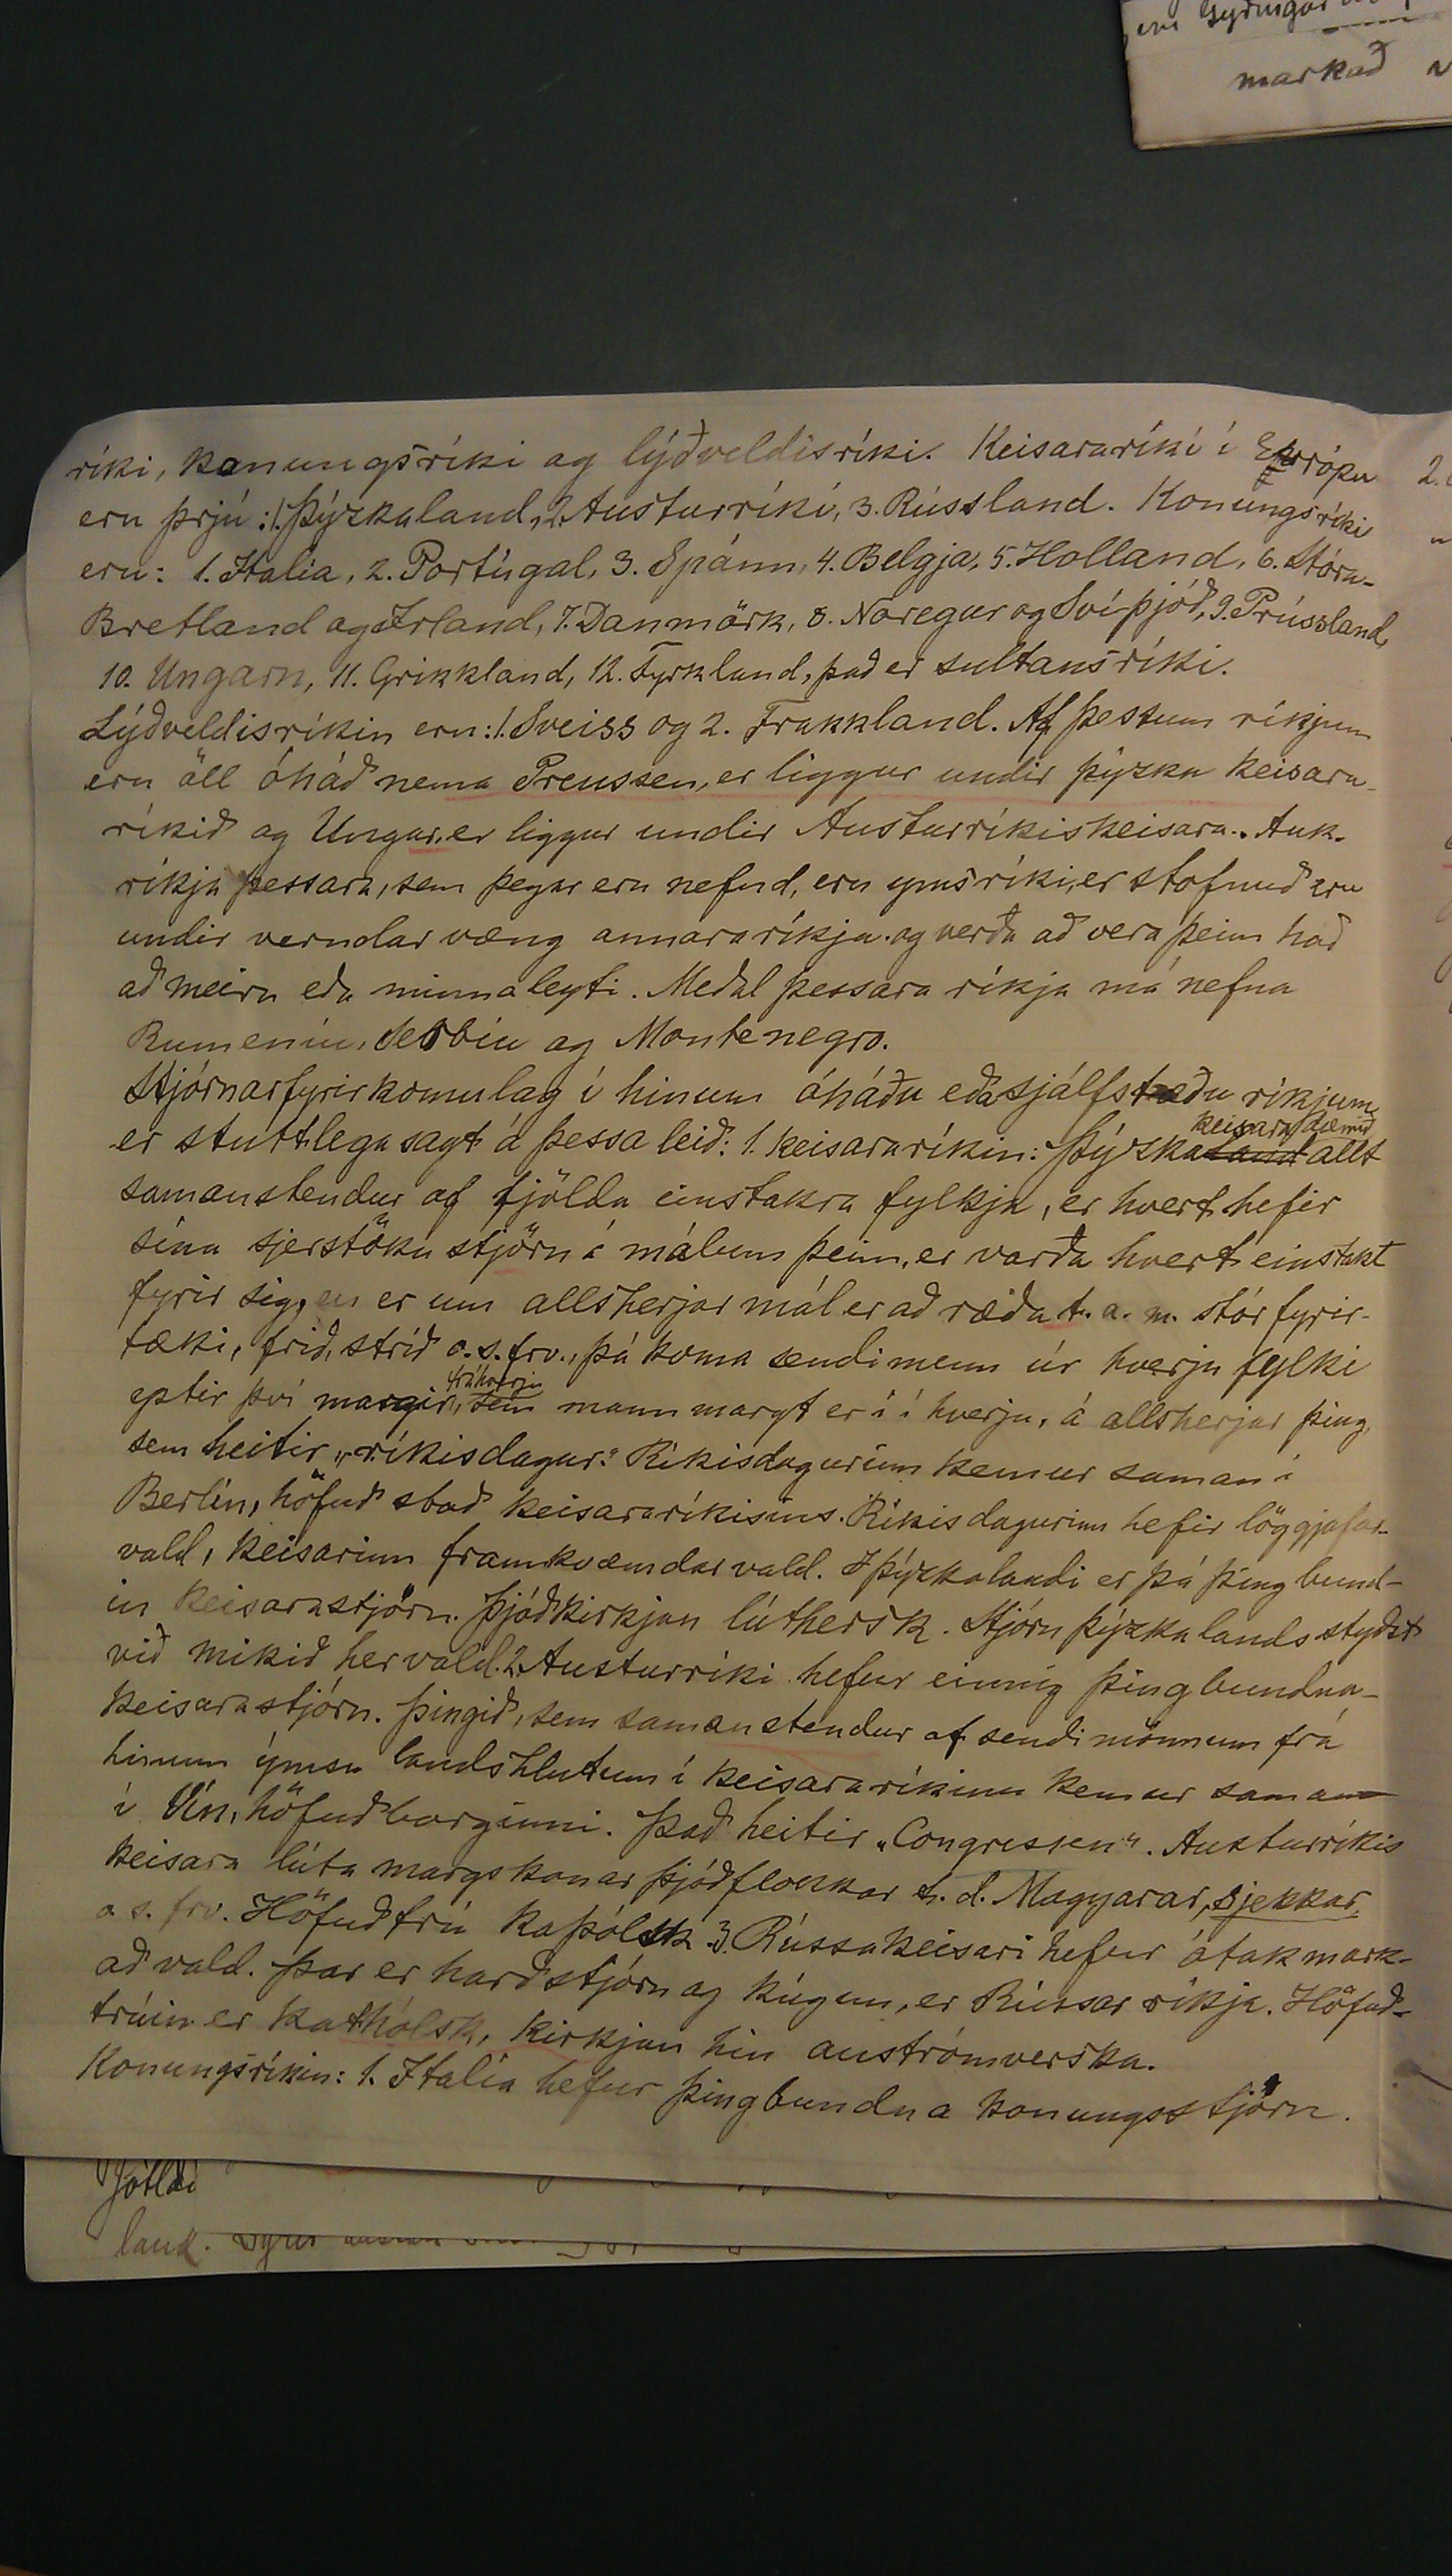 markað
ríki, konungsríki og lýðveldisríki. Keisararíki í Evrópu
eru þrjú: 1. Þýzkaland, 2. Austurríki, 3. Rússland. Konungsríki
eru: 1. Italia, 2. Portúgal, 3. Spánn, 4. Belgja, 5. Holland, 6. Stóra-
Bretland og Irland, 7. Danmörk, 8. Noregur og Svíþjóð, 9. Prússland,
10. Ungarn, 11. Grikkland, 12. Tyrkland, það er sultansríki.
Lýðveldisríkin eru: 1. Sveiss og 2. Frakkland. Af þessum ríkjum
eru öll óháð nema Preussen, er liggur undir þýzka keisara-
ríkið og Ungar, er liggur undir Austurríkiskeisara. Auk
ríkja þessara, sem þegar eru nefnd, eru yms ríki, er stofnuð eru
undir verndar væng annara ríkja og verða að vera þeim háð
að meiru eða minna leyti. Meðal þessara ríkja má nefna
Rumeniu, Serbíu og Montenegro.
Stjórnarfyrirkomulag í hinum óháðu eða sjálfstæðu ríkjum
er stuttlega sagt á þessa leið: 1. keisararíkin: Þýzkaland keisaradæmið allt
samanstendur af fjölda einstakra fylkja, er hvert hefir
sína sjerstöku stjörn í málum þeim, er varða hvert einstakt
fyrir sig, en er um allsherjar mál er að ræða t. a. m. stór fyrir-
tæki, frið, stríð o. s. frv., þá koma sendimenn úr hverju fylki
eptir því margir frá hverju, sem mannmargt er í í hverju, á allsherjar þing,
sem heitir „ríkisdagur." Ríkisdagurinn kemur saman í
Berlín, höfuð stað keisararíkisins. Ríkisdagurinn hefir löggjafar-
vald, keisarinn framkvæmdar vald. I Þýzkalandi er þá þing bund-
in keisarastjörn. Þjóðkirkjan lúthersk. Stjórn Þýzkalands styðst
við mikið hervald. 2. Austurríki hefur einnig þingbundna-
keisarastjórn. Þingið, sem samanstendur af sendimönnum frá
hinum ýmsu landshlutum í keisararíkinu kemur saman
í Vín, höfuðborginni. Það heitir „Congressen". Austurríkis
keisara lúta margskonar þjóðflokkar t. d. Magyarar, sjekkar,
o s. frv. Höfuðtrú kaþólsk. 3. Rússakeisari hefur ótakmark-
að vald. Þar er harðstjórn og kúgun, er Rússar ríkja. Höfuð-
trúin er kathólsk, kirkjan hin austrómverska.
Konungsríkin: 1. Italía hefur þingbundna konungsstjörn.
land.